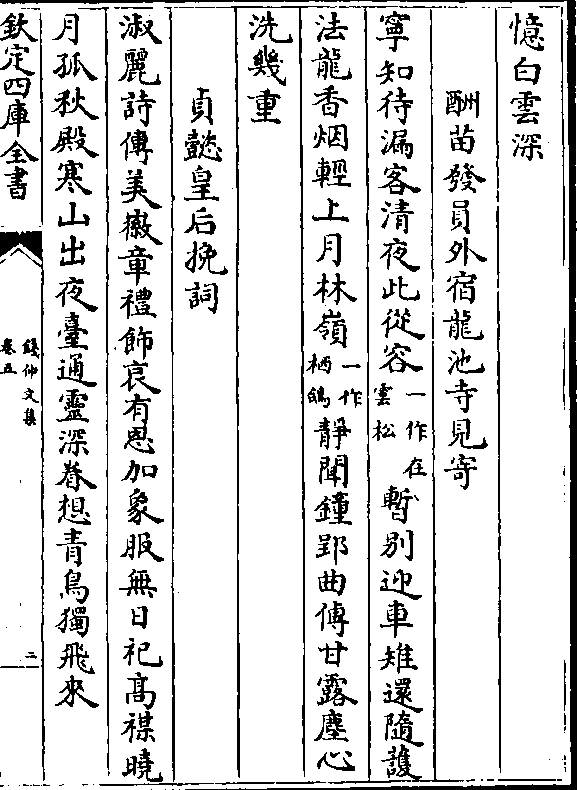 憶白雲深
酬苗發員外宿龍池寺見寄
寧知待漏客清夜此從容一作在雲松暫別迎車雉還隨護
法龍香烟輕上月林嶺一作栖鴿靜聞鐘郢曲傳甘露塵心
洗幾重
貞懿皇后挽詞
淑麗詩傳美徽章禮飾哀有恩加象服無日祀高禖曉
月孤秋殿寒山出夜臺通靈深眷想青鳥獨飛來
欽定四庫全書
錢仲文集
卷五
三